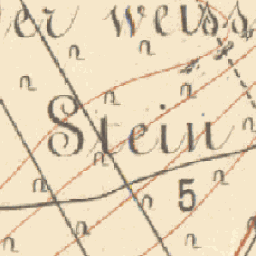 er weiss
Stein
5